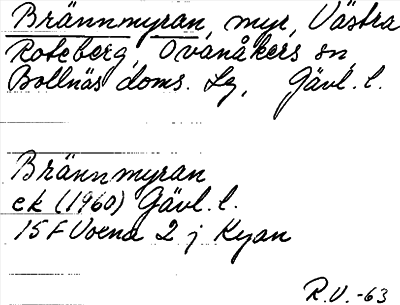 Brännmyran, myr, Västra
Roteberg, Ovanåkers sn,
Bollnäs doms. Lg, Gävl. l.
Brännmyran
ek (1960) Gävl. l.
15F Voxna 2 j Kyan
R.V. -63